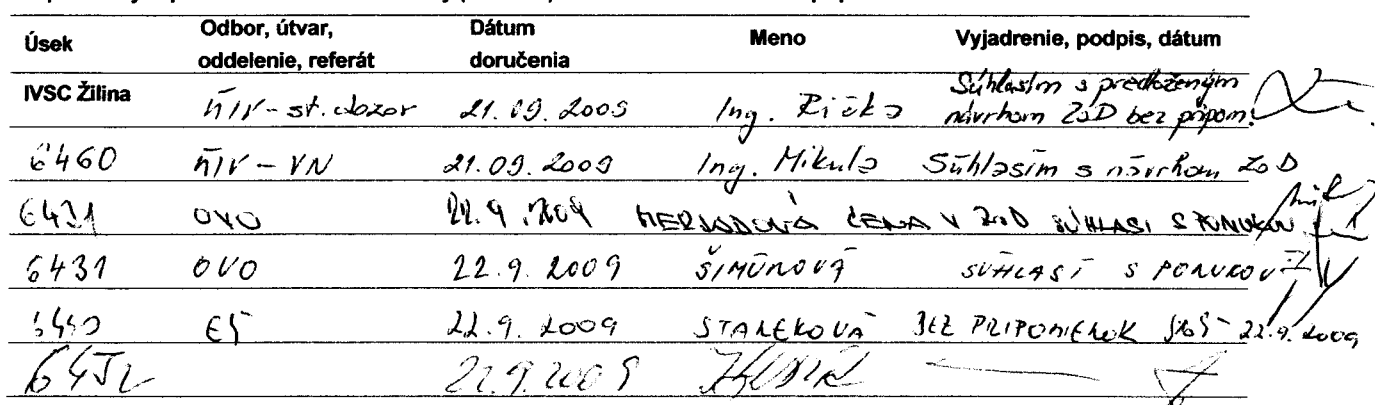 Úsek Odbor, útvar, oddelenie, referát Dátum doručenia Meno Vyjadrenie, podpis, dátum
IVSC Žilina - st. dozor 21.09.2009 Ing. Súhlasím s predloženým návrhom ZoD bez pripom.
6460 - VN 21.09.2009 Ing. Mikula Súhlasím s návrhom ZoD
6431 OVO 22.9.2009 CENA V ZoD SÚHLASI S PONUKOU
6431 OVO 22.9.2009 ŠIMÚNOVÁ SÚHLASÍ S PONUKOU
EÚ 22.9.2009 STANEKOVÁ BEZ PRIPOMIENOK 22.9.2009
22.9.2009